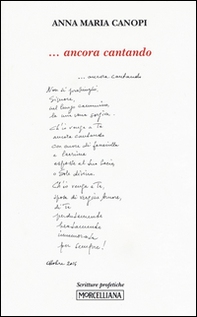 ANNA MARIA CANOPI
... ancora cantando
... ancora cantando
Non si prolunghi,
Signore,
nel lungo cammino
la mia corsa
Ch'io venga a Te
ancora cantando
con cuore di fanciulla
e lacrima
o Sole divino.
Ch'io venga a Te,
sposa di vergine Amore,
di Te
perdutamente
beatamente
innamorata
per sempre!
ottobre 2015
Scritture profetiche
MORCELLIANA